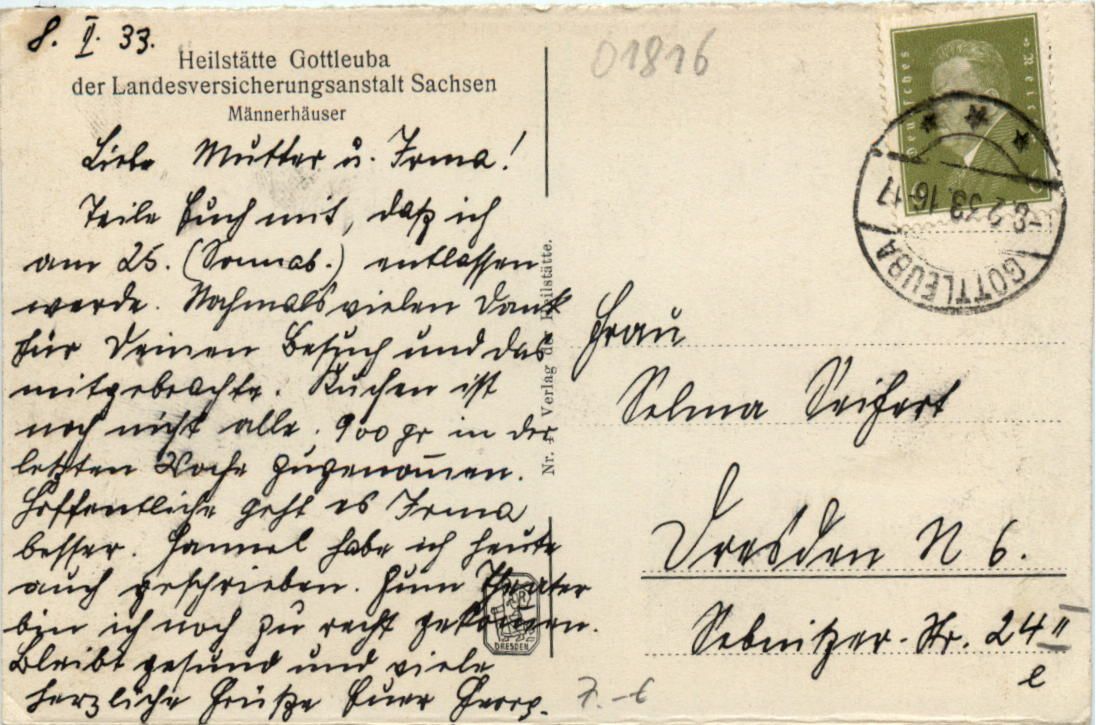 8. II. 33.
Heilstätte Gottleuba
der Landesversicherungsanstalt Sachsen
Männerhäuser
Liebe Mutter u. Irma!
Teile Euch mit, daß ich
am 25. (Sonnab.) entlassen
werde. Nochmals vielen Dank
für Deinen Besuch und das
mitgebrachte. Kuchen ist
noch nicht alle. 900 gr in der
letzten Woche zugenommen.
Hoffentliche geht es Irma
besser. Hannel habe ich heute
auch geschrieben. Zum Theater
bin ich noch zu recht gekommen.
Bleibt gesund und viele
herzliche Grüße Euer Georg.
Nr. Verlag der Heilstätte.
DRESDEN
01816
Deutsches Reich
GOTTLEUBA
-8.2.33.16-17
Frau
Selma Seifert
Dresden N 6.
Sebnitzer-Str. 24 II
e
7.-6